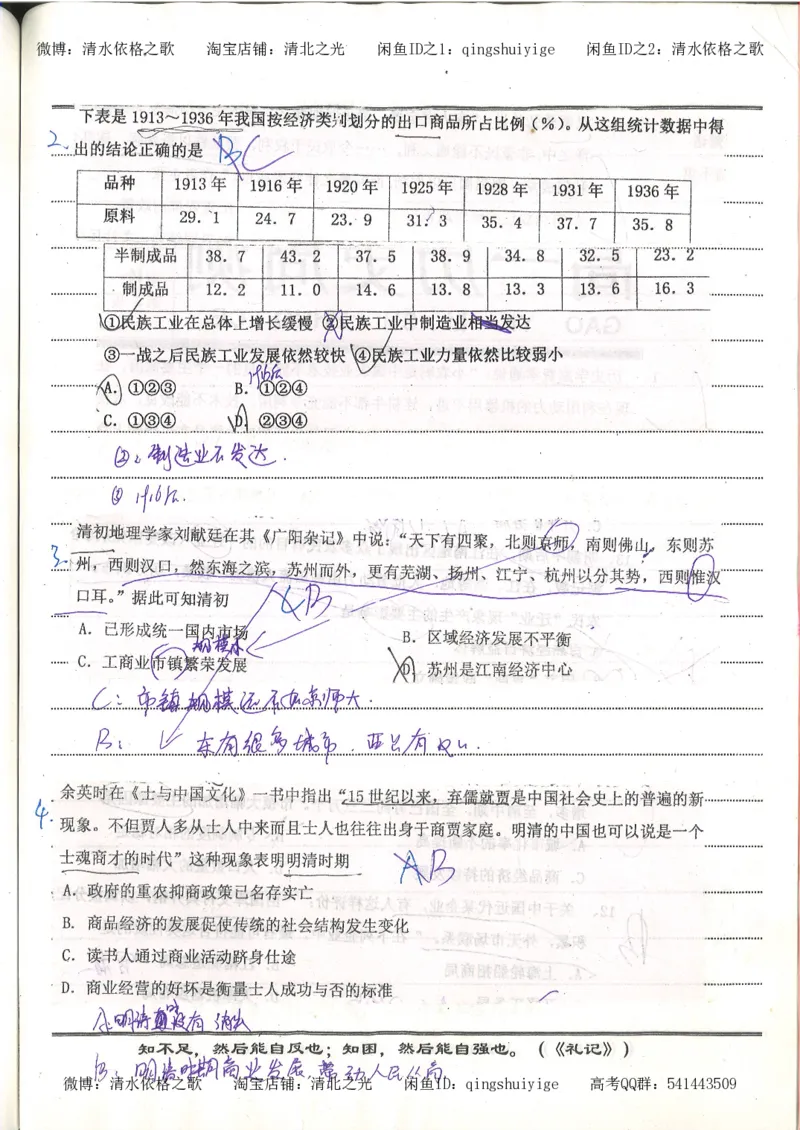 微博：清水依格之歌 淘宝店铺：清北之光 闲鱼ID之1：qingshuiyige 闲鱼ID之2：清水依格之歌
下表是 1913～1936 年我国按经济类别划分的出口商品所占比例（%）。从这组统计数据中得
2. 出的结论正确的是 B C
品种 1913 年 1916 年 1920 年 1925 年 1928 年 1931 年 1936 年
原料 29．1 24．7 23．9 31．3 35．4 37．7 35．8
半制成品 38．7 43．2 37．5 38．9 34．8 32．5 23．2
制成品 12．2 11．0 14．6 13．8 13．3 13．6 16．3
①民族工业在总体上增长缓慢 ②民族工业中制造业相当发达
③一战之后民族工业发展依然较快 ④民族工业力量依然比较弱小
1916后
A．①②③ B．①②④
C．①③④ D．②③④
②：制造业不发达．
③ 1916后．
清初地理学家刘献廷在其《广阳杂记》中说：“天下有四聚，北则京师，南则佛山，东则苏
3. 州，西则汉口，然东海之滨，苏州而外，更有芜湖、扬州、江宁、杭州以分其势，西则惟汉
口耳。”据此可知清初 B
A．已形成统一国内市场 B．区域经济发展不平衡
规模小
C．工商业市镇繁荣发展 D．苏州是江南经济中心
C：市镇规模还不如京师大．
B： 东有很多城市．西只有汉口．
余英时在《士与中国文化》一书中指出“15 世纪以来，弃儒就贾是中国社会史上的普遍的新
4. 现象。不但贾人多从士人中来而且士人也往往出身于商贾家庭。明清的中国也可以说是一个
士魂商才的时代”这种现象表明明清时期 A B
A．政府的重农抑商政策已名存实亡
B．商品经济的发展促使传统的社会结构发生变化
C．读书人通过商业活动跻身仕途
D．商业经营的好坏是衡量士人成功与否的标准
A：明清 没有消亡
知不足，然后能自反也；知困，然后能自强也。（《礼记》）
B：明清时期商业发展，带动人民从商
微博：清水依格之歌 淘宝店铺：清北之光 闲鱼ID：qingshuiyige 高考QQ群：541443509